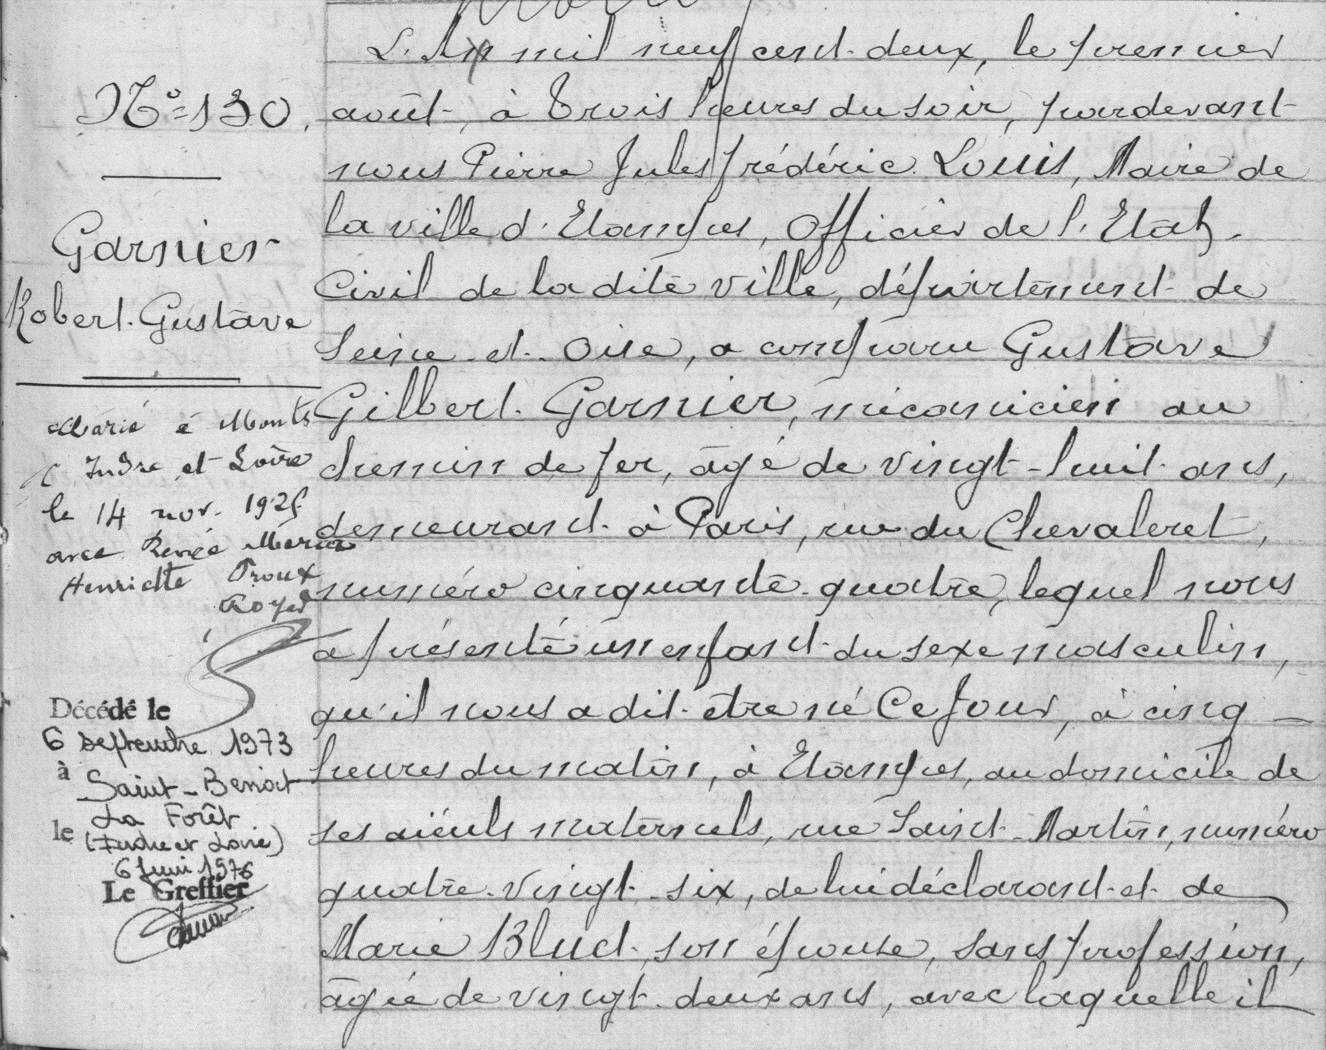 N° = 130.
Garnier
Robert Gustave
Marié à Monts
Indre et Loire
le 14 nov. 192
avec Renée Marie
Henriette Proux
Royer
Décédé le
6 septembre 1973
à Saint-Benoît
La Forêt
(Indre et Loire)
le 6 Juin 1976
Le Greffier
L'An mil neuf cent deux, le premier
août, à trois heures du soir, pardevant
nous Pierre Jules Frédéric Louis, Maire de
la ville d'Etampes, Officier de l'Etat
Civil de la dite ville, département de
Seine et Oise, a comparu Gustave
Gilbert Garnier, mécanicien au
chemin de fer, âgé de vingt-huit ans,
demeurant à Paris, rue du Chevaleret,
numéro cinquante-quatre, lequel nous
a présenté un enfant du sexe masculin,
qu'il nous a dit être né Ce Jour, à cinq
heures du matin, à Etampes, au domicile de
ses aïeuls maternels, rue Saint-Martin, numéro
quatre-vingt-six, de lui déclarant et de
Marie Blud son épouse, sans profession,
âgée de vingt-deux ans, avec laquelle il